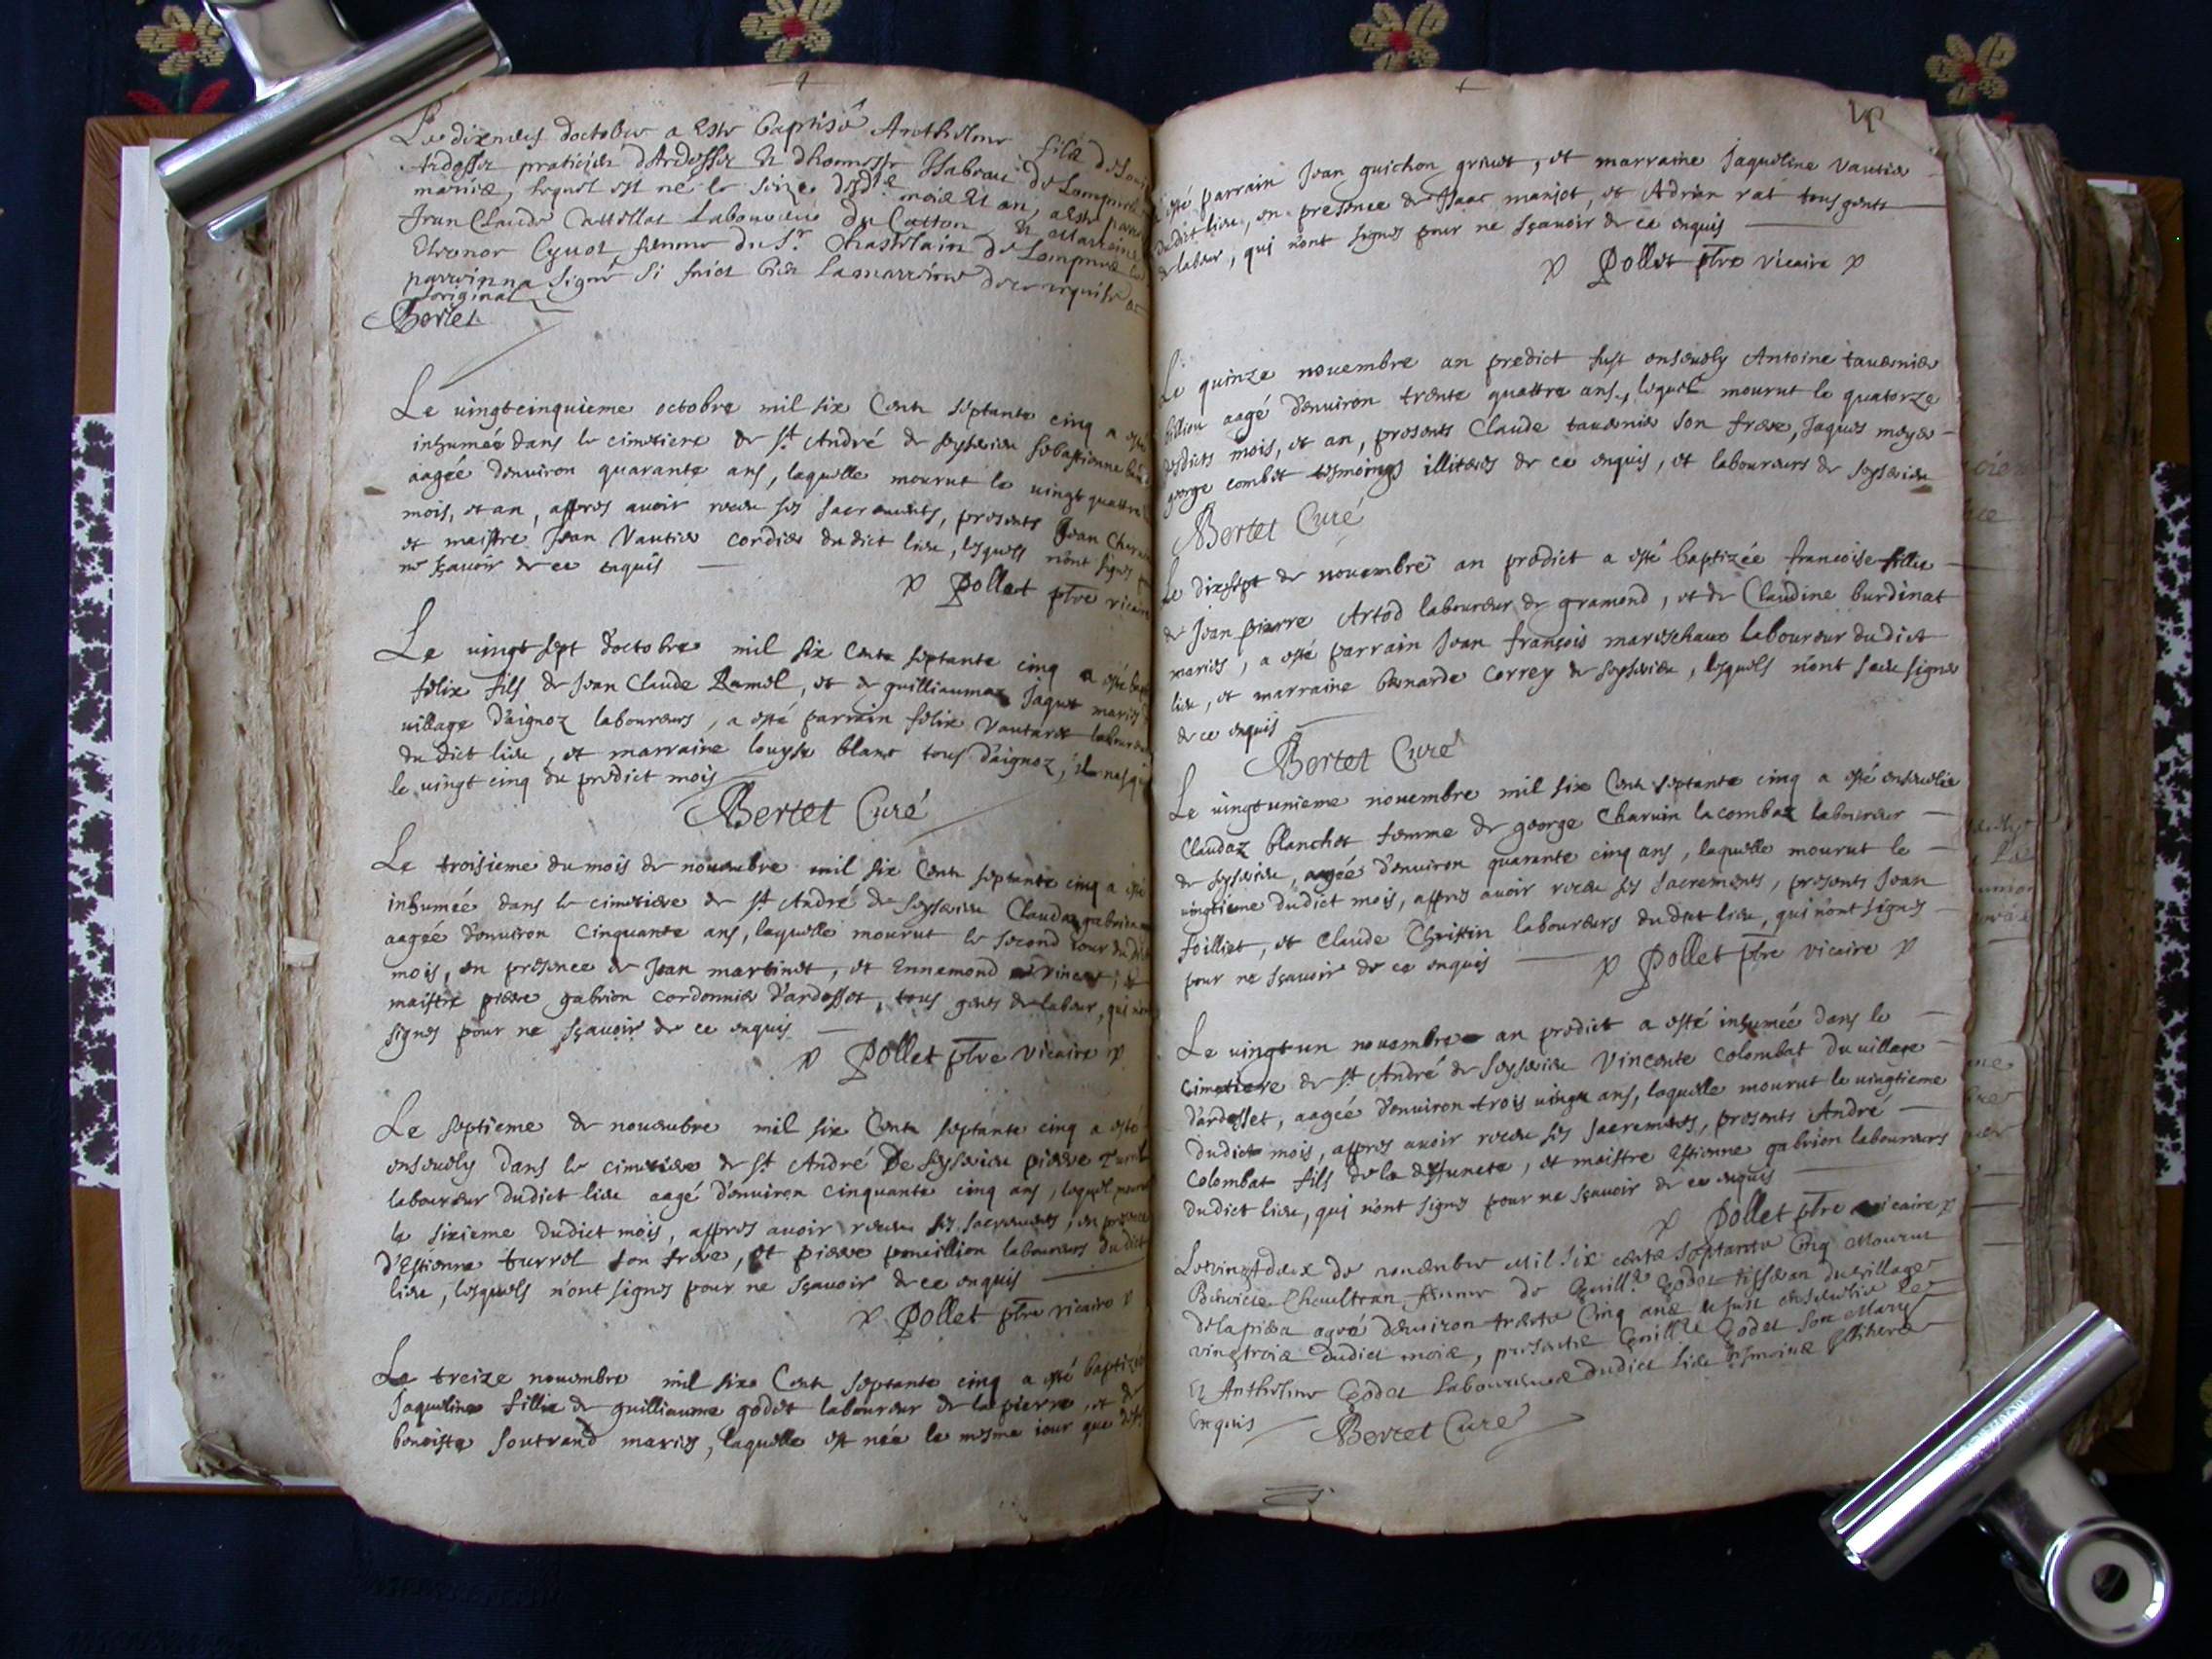 Le dixneuf doctobre a este baptisé Anthelme fils de Loui
Ardosset praticien dArdosset et dhonneste Isabeau de Lompnie
mariés, lequel est né le seize dudt mois et an, a esté parr
Jean Claude Laboureur du Catton, et Marraine
Eleonor Cyuot femme du Sr Chastelain de Lompnes
parrain a signé
original
Bertet
Le vingtcinquieme octobre mil six Cents septante cinq a esté
inhumée dans le cimetiere de st André de seyserieu sebastienne
aagée d'enuiron quarante ans, laquelle mourut le uingt quattre
mois, et an, appres auoir receu ses sacrements, presents Jean
et maistre Jean Vautier cordier dudict lieu, lesquels n'ont signes
ne sçauoir de ce enquis
p Pollet ptre vicaire
Le uingt sept d'octobre mil six Cents septante cinq a esté
felix fils de Jean Claude Ramel, et de guilliaumaz Jaquet maries
uillage d'aignoz laboureurs, a esté parrain felix Vautaret laboureur
du dict lieu, et marraine louyse blanc tous d'aignoz, il nasqui
le uingt cinq du predict mois
Bertet Curé
Le troisieme du mois de nouembre mil six Cents septante cinq a esté
inhumée dans le cimetiere de st André de seyserieu Claudaz gabrion
aagée d'enuiron Cinquante ans, laquelle mourut le second iour du dict
mois, en presence de Jean martinet, et Ennemond vincent, et
maistre pierre gabrion cordonnier d'ardosset, tous gents de labeur, qui n'ont
signes pour ne sçauoir de ce enquis
p Pollet ptre vicaire p
Le septieme de nouembre mil six Cents septante cinq a esté
enseuely dans le cimetiere de st André De seyserieu pierre Turrel
laboureur dudict lieu aagé d'enuiron cinquante cinq ans, lequel mourut
le sixieme dudict mois, appres auoir receu ses sacrements, en presence
d'Estienne turrel son frere, et pierre laboureurs du dict
lieu, lesquels n'ont signes pour ne sçauoir de ce enquis
p Pollet ptre vicaire p
Le treize nouembre mil six Cents septante cinq a esté baptizée
Jaqueline fillie de guilliaume godet laboureur de la pierre, et de
benoiste soutrand maries, laquelle est née le mesme iour que
esté parrain Jean guichon griuet, et marraine Jaqueline Vautier
dudict lieu, en presence de Isaac maniot, et Adrian rat tous gents
de labeur, qui n'ont signes pour ne sçauoir de ce enquis
p Pollet ptre vicaire p
Le quinze nouembre an predict fust enseuely Antoine tauernier
billion aagé d'enuiron trente quattre ans, lequel mourut le quatorze
desdicts mois, et an, presents Claude tauernier son frere, Jaques meyer
george combet tesmoings illiteres de ce enquis, et laboureurs de seyserieu
Bertet Curé
Le dixsept de nouembre an predict a esté baptizée francoise fillie
de Jean pierre Artod laboureur de gramond, et de Claudine burdinat
maries, a esté parrain Jean françois mareschaux laboureur dudict
lieu, et marraine benarde Correy de seyserieu, lesquels n'ont sceu signer
de ce enquis
Bertet Curé
Le uingtunieme nouembre mil six Cents septante cinq a esté enseuelie
Claudaz blanchet femme de george Charuin lacombaz laboureur
de seyserieu, aagée d'enuiron quarante cinq ans, laquelle mourut le
uingtieme dudict mois, appres auoir receu ses sacrements, presents Jean
foilliet, et Claude Christin laboureurs dudict lieu, qui n'ont signes
pour ne sçauoir de ce enquis
p Pollet ptre vicaire p
Le uingt un nouembre an predict a esté inhumée dans le
Cimetiere de st André de Seyserieu Vincente Colombat du uillage
d'ardosset, aagée d'enuiron trois uingts ans, laquelle mourut le uingtieme
dudict mois, appres auoir receu ses sacrements, presents André
Colombat fils de la deffuncte, et maistre Estienne gabrion laboureurs
dudict lieu, qui n'ont signes pour ne sçauoir de ce enquis
p Pollet ptre vicaire p
Le vingtdeux de nouembre Mil Six cents Septante Cinq Mourut
femme de Guille Godet tisseran du village
de la piere agée denuiron trente Cinq ans et fust enseuelie le
vingtrois dudict mois, presents Guille Godet son Mary
Et Anthelme Godet Laboureurs dudict lieu tesmoins Illiteres
Enquis
Bertet Curé